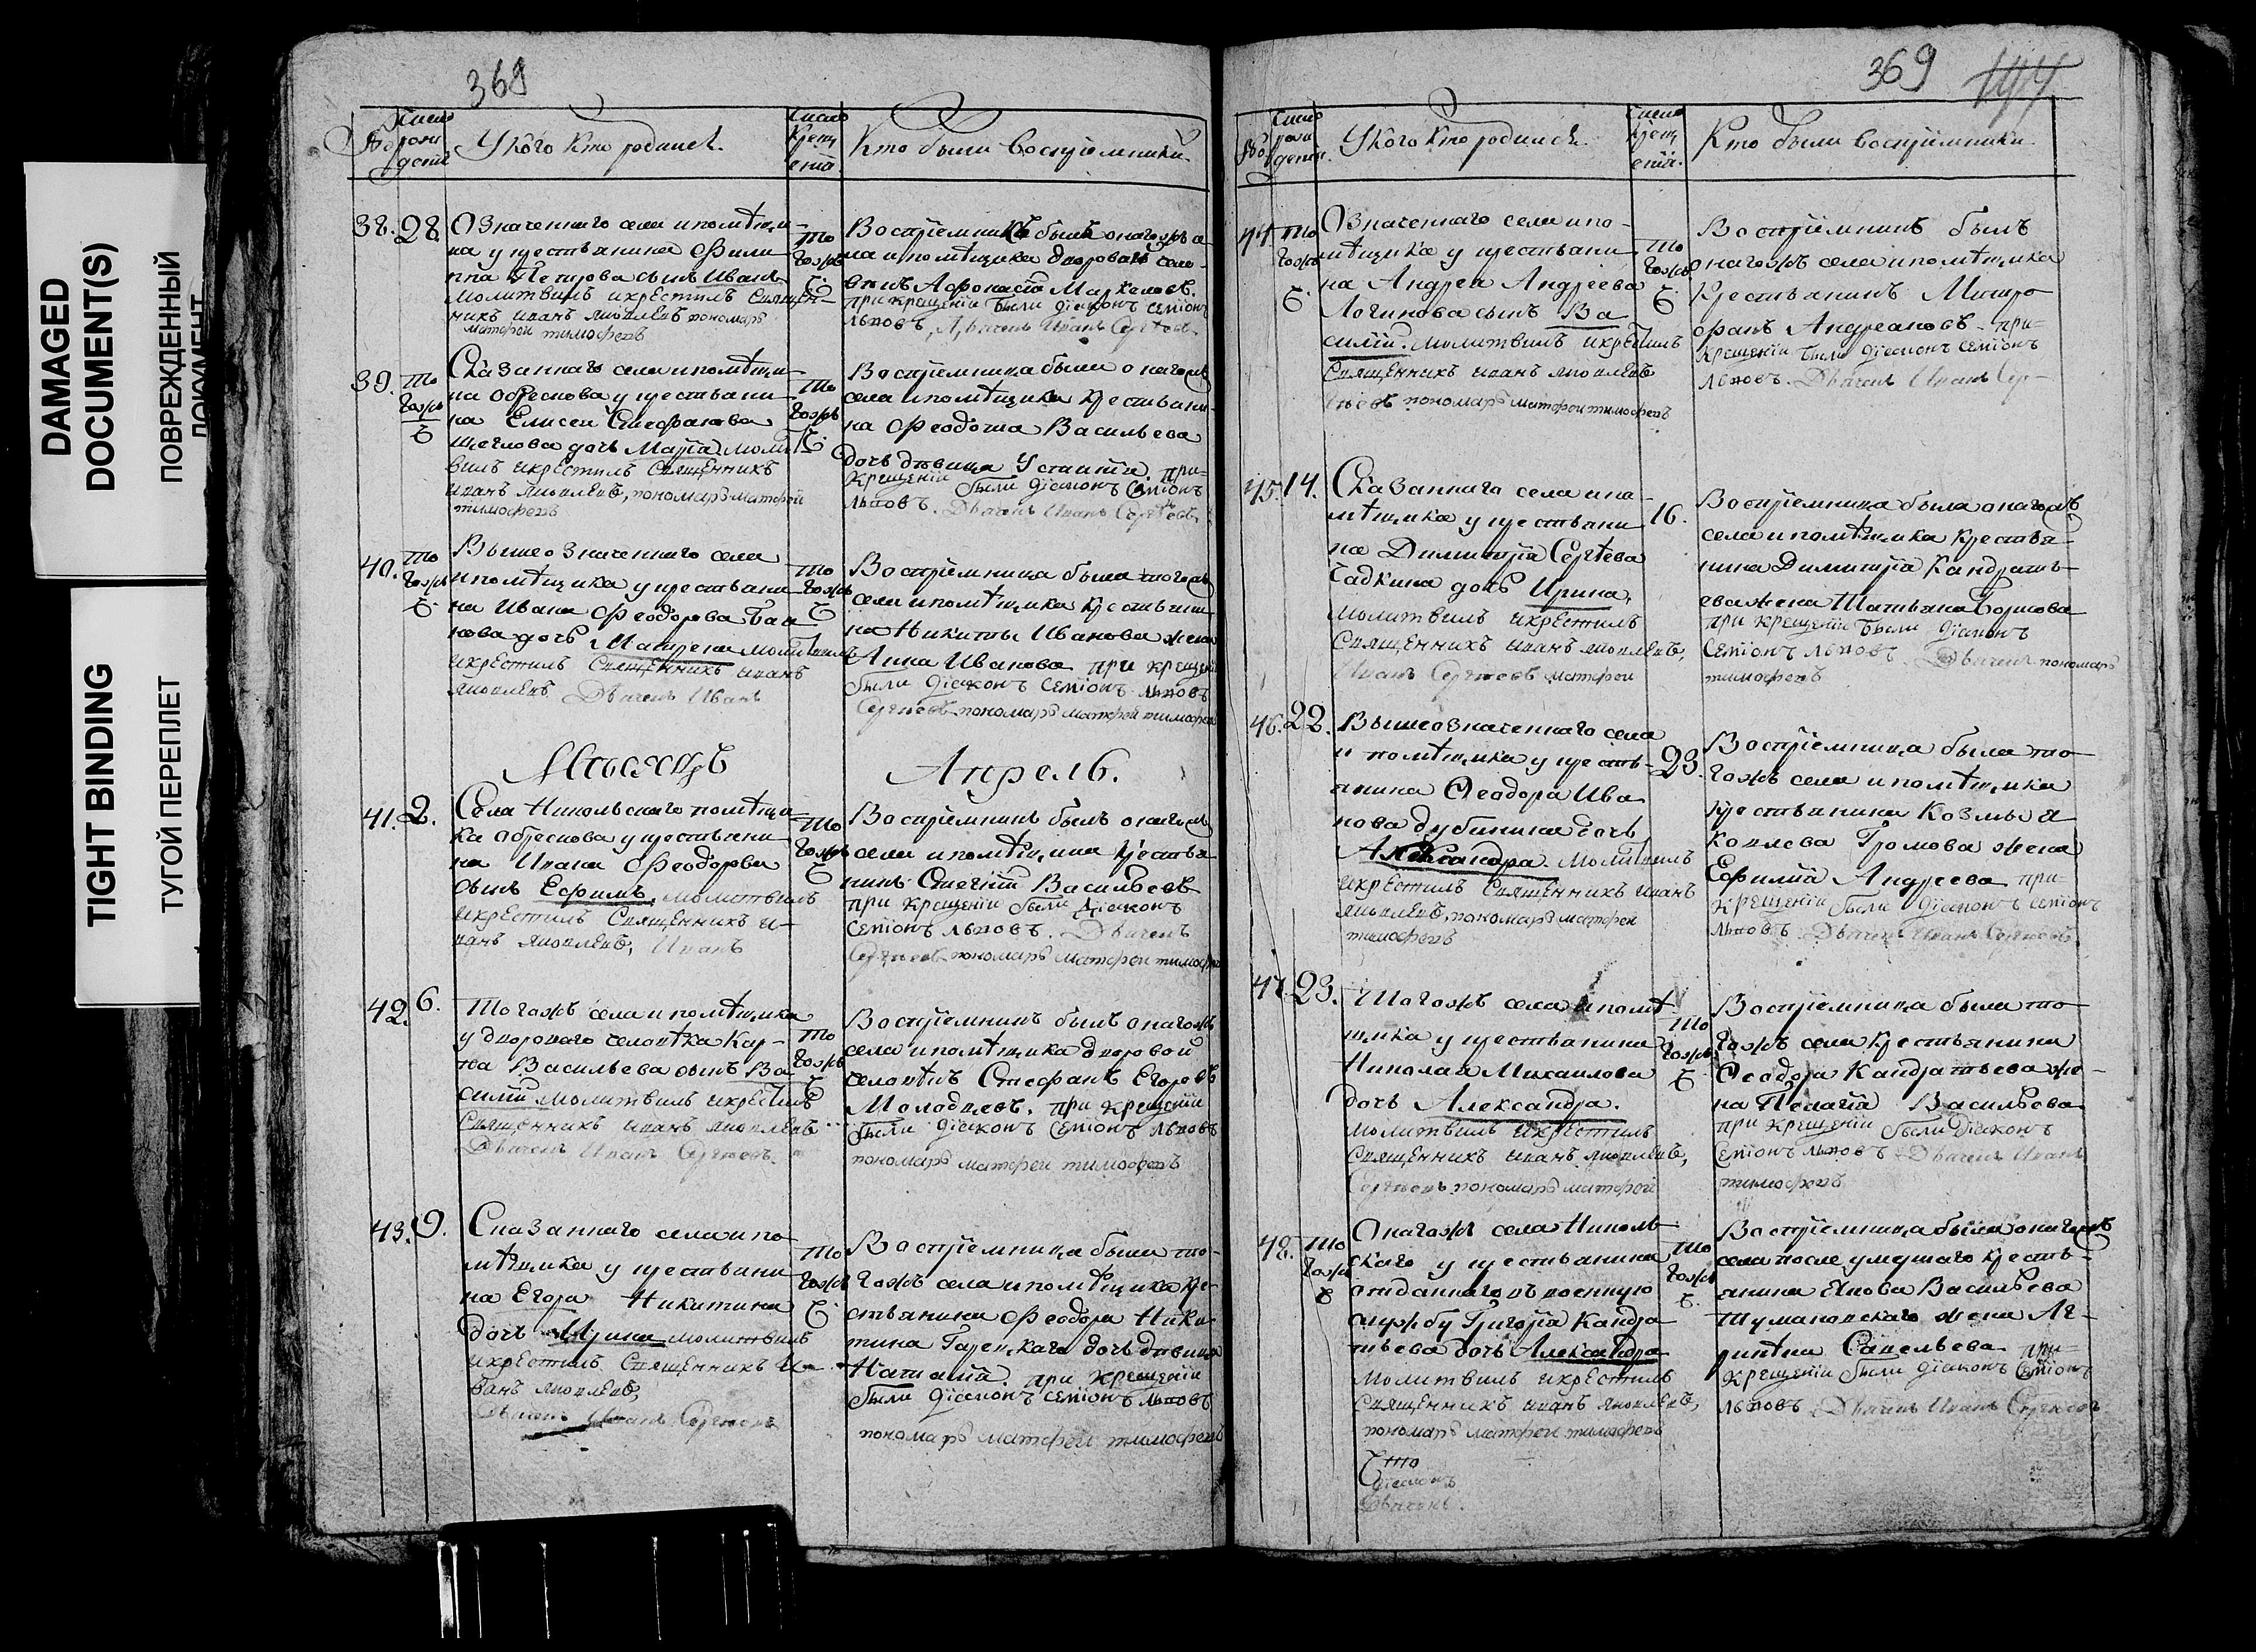 DAMAGED
DOCUMENT(S)
ПОВРЕЖДЕННЫЙ
ДОКУМЕНТ
TIGHT BINDING
ТУГОЙ ПЕРЕПЛЕТ
369
У кого кто родился.
Кто были воспрiемники.
38. 28. Означеннаго села и помѣщи-
ка у крестьянина Фили-
ппа Петрова сынъ Иванъ
молитвилъ и крестилъ Священ-
никъ Иванъ Яковлевъ пономарь
матфей тимофеевъ
тогожъ
Воспрiемникъ былъ онагожъ се-
ла и помѣщика дворовый чело-
вѣкъ Афонасiй Маркеловъ.
при крещенiи были дiаконъ семiонъ
львовъ, Дьячекъ Иванъ Сергѣевъ.
39. тогожъ
Сказаннаго села и помѣщи-
ка Обрескова у крестьяни-
на Елисея Стефанова
Щеглова дочь Марiа моли-
вилъ и крестилъ Священникъ
иванъ яковлевъ, пономарь матфей
тимофеевъ
тогожъ
Воспрiемница была онагожъ
села и помѣщика крестьяни-
на Феодота Васильева
дочь дѣвица Устинiя при-
крещенiи были дiаконъ семiонъ
львовъ. Дьячекъ Иванъ Сергѣевъ.
40. тогожъ
Вышеозначеннаго села
и помѣщика у крестьяни-
на Ивана Феодорова
дочь Матрена молитвилъ
и крестилъ Священникъ иванъ
яковлевъ Дьячекъ Иванъ
тогожъ
Воспрiемница была тогожъ
села и помѣщика крестьяни-
на Никиты Иванова жена
Анна Иванова при крещенiи
были дiаконъ семiонъ львовъ
Сергѣевъ пономарь матфей тимофеевъ
Мѣсяцъ Апрель.
41. 2. Села Никольскаго помѣщи-
ка Обрескова у крестьяни-
на Ивана Феодорова
сынъ Ефимъ, молитвилъ
и крестилъ Священникъ и-
ванъ яковлевъ, Иванъ
тогожъ
Воспрiемникъ былъ онагожъ
села и помѣщика крестья-
нинъ Васильевъ
при крещенiи были дiаконъ
семiонъ львовъ. Дьячекъ
Сергѣевъ пономарь матфей тимофеевъ
42. 6. Тогожъ села и помѣщика
у двороваго человѣка Кар-
па Васильева сынъ Ва-
силiй молитвилъ и крестилъ
Священникъ иванъ яковлевъ
Дьячекъ Иванъ Сергѣевъ.
тогожъ
Воспрiемникъ былъ онагожъ
села и помѣщика дворовой
человѣкъ Стефанъ Егоровъ
Молодцовъ. при крещенiи
были дiаконъ семiонъ львовъ
пономарь матфей тимофеевъ
43. 9. Сказаннаго села и по-
мѣщика у крестьяни-
на Егора Никитина
дочь Ирина молитвилъ
и крестилъ Священникъ и-
ванъ яковлевъ,
Дьячекъ Иванъ Сергѣевъ
тогожъ
Воспрiемница была то-
гожъ села и помѣщика кре-
стьянина Феодора Ники-
тина дочь дѣвица
Наталiя. при крещенiи
были дiаконъ семiонъ львовъ
пономарь матфей тимофеевъ
369
У кого кто родился.
Кто были воспрiемники.
44. тогожъ
Означеннаго села и по-
мѣщика у крестьяни-
на Андрея Андреева
Логинова сынъ Ва-
силiй. молитвилъ и крестилъ
Священникъ иванъ яковлевъ
пономарь матфей тимофеевъ
тогожъ
Воспрiемникъ былъ
онагожъ села и помѣщика
Крестьянинъ Митро-
фанъ Андреановъ при-
крещенiи были дiаконъ семiонъ
львовъ. Дьячекъ Иванъ Сер-
45. 14. Сказаннаго села и по-
мѣщика у крестьяни-
на Димитрiя Сергѣева
дочь Ирина,
молитвилъ и крестилъ
Священникъ иванъ яковлевъ,
Иванъ Сергѣевъ матфей
16.
Воспрiемница была онагожъ
села и помѣщика крестья-
нина Димитрiя Кандрать-
ева жена Татьяна
при крещенiи были дiаконъ
семiонъ львовъ Дьячекъ пономарь
тимофеевъ
46. 22. Вышеозначеннаго села
и помѣщика у кресть-
янина Феодора Ива-
нова Дубинина дочь
Александра молитвилъ
и крестилъ Священникъ иванъ
яковлевъ, пономарь матфей
тимофеевъ
23.
Воспрiемница была то-
гожъ села и помѣщика
крестьянина Козмы Я-
ковлева Громова жена
Ефимiя Андреева при-
крещенiи были дiаконъ семiонъ
львовъ Дьячекъ Иванъ Сергѣевъ
47. 23. Тогожъ села и помѣ-
щика у крестьянина
Николая Михаилова
дочь Александра.
молитвилъ и крестилъ
Священникъ иванъ яковлевъ,
Сергѣевъ пономарь матфей
тогожъ
Воспрiемница была то-
гожъ села крестьянина
Феодора Кандратьева же-
на Пелагiя Васильева
при крещенiи были дiаконъ
семiонъ львовъ Дьячекъ Иванъ
тимофеевъ
48. тогожъ
Онагожъ села Николь-
скаго у крестьянина
отданнаго въ военную
службу Григорiя Кандра-
тьева дочь Александра
молитвилъ и крестилъ
Священникъ иванъ яковлевъ,
пономарь матфей тимофеевъ
тогожъ
Воспрiемница была онагожъ
села после умершаго кресть-
янина Якова Васильева
Тумановскаго жена
Савельева при-
крещенiи были дiаконъ семiонъ
львовъ Дьячекъ Иванъ Сергѣевъ
дiаконъ
Дьячекъ.